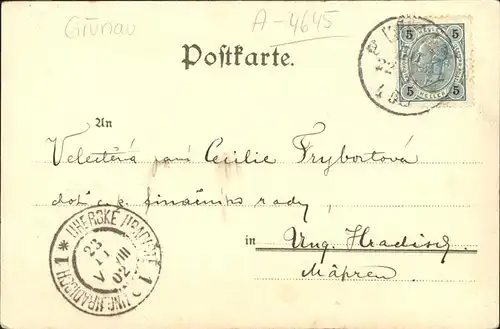 Grünau
A-4645
Postkarte.
5 5
HELLER
5 5
An
Velectěná paní Cecilie Frybortová
choť c. k. finančního rady,
in Ung. Hradisch.
Mähren.
* UHERSKÉ HRADIŠTĚ *
23
VIII
V 02
1 UNG. HRADISCH 1